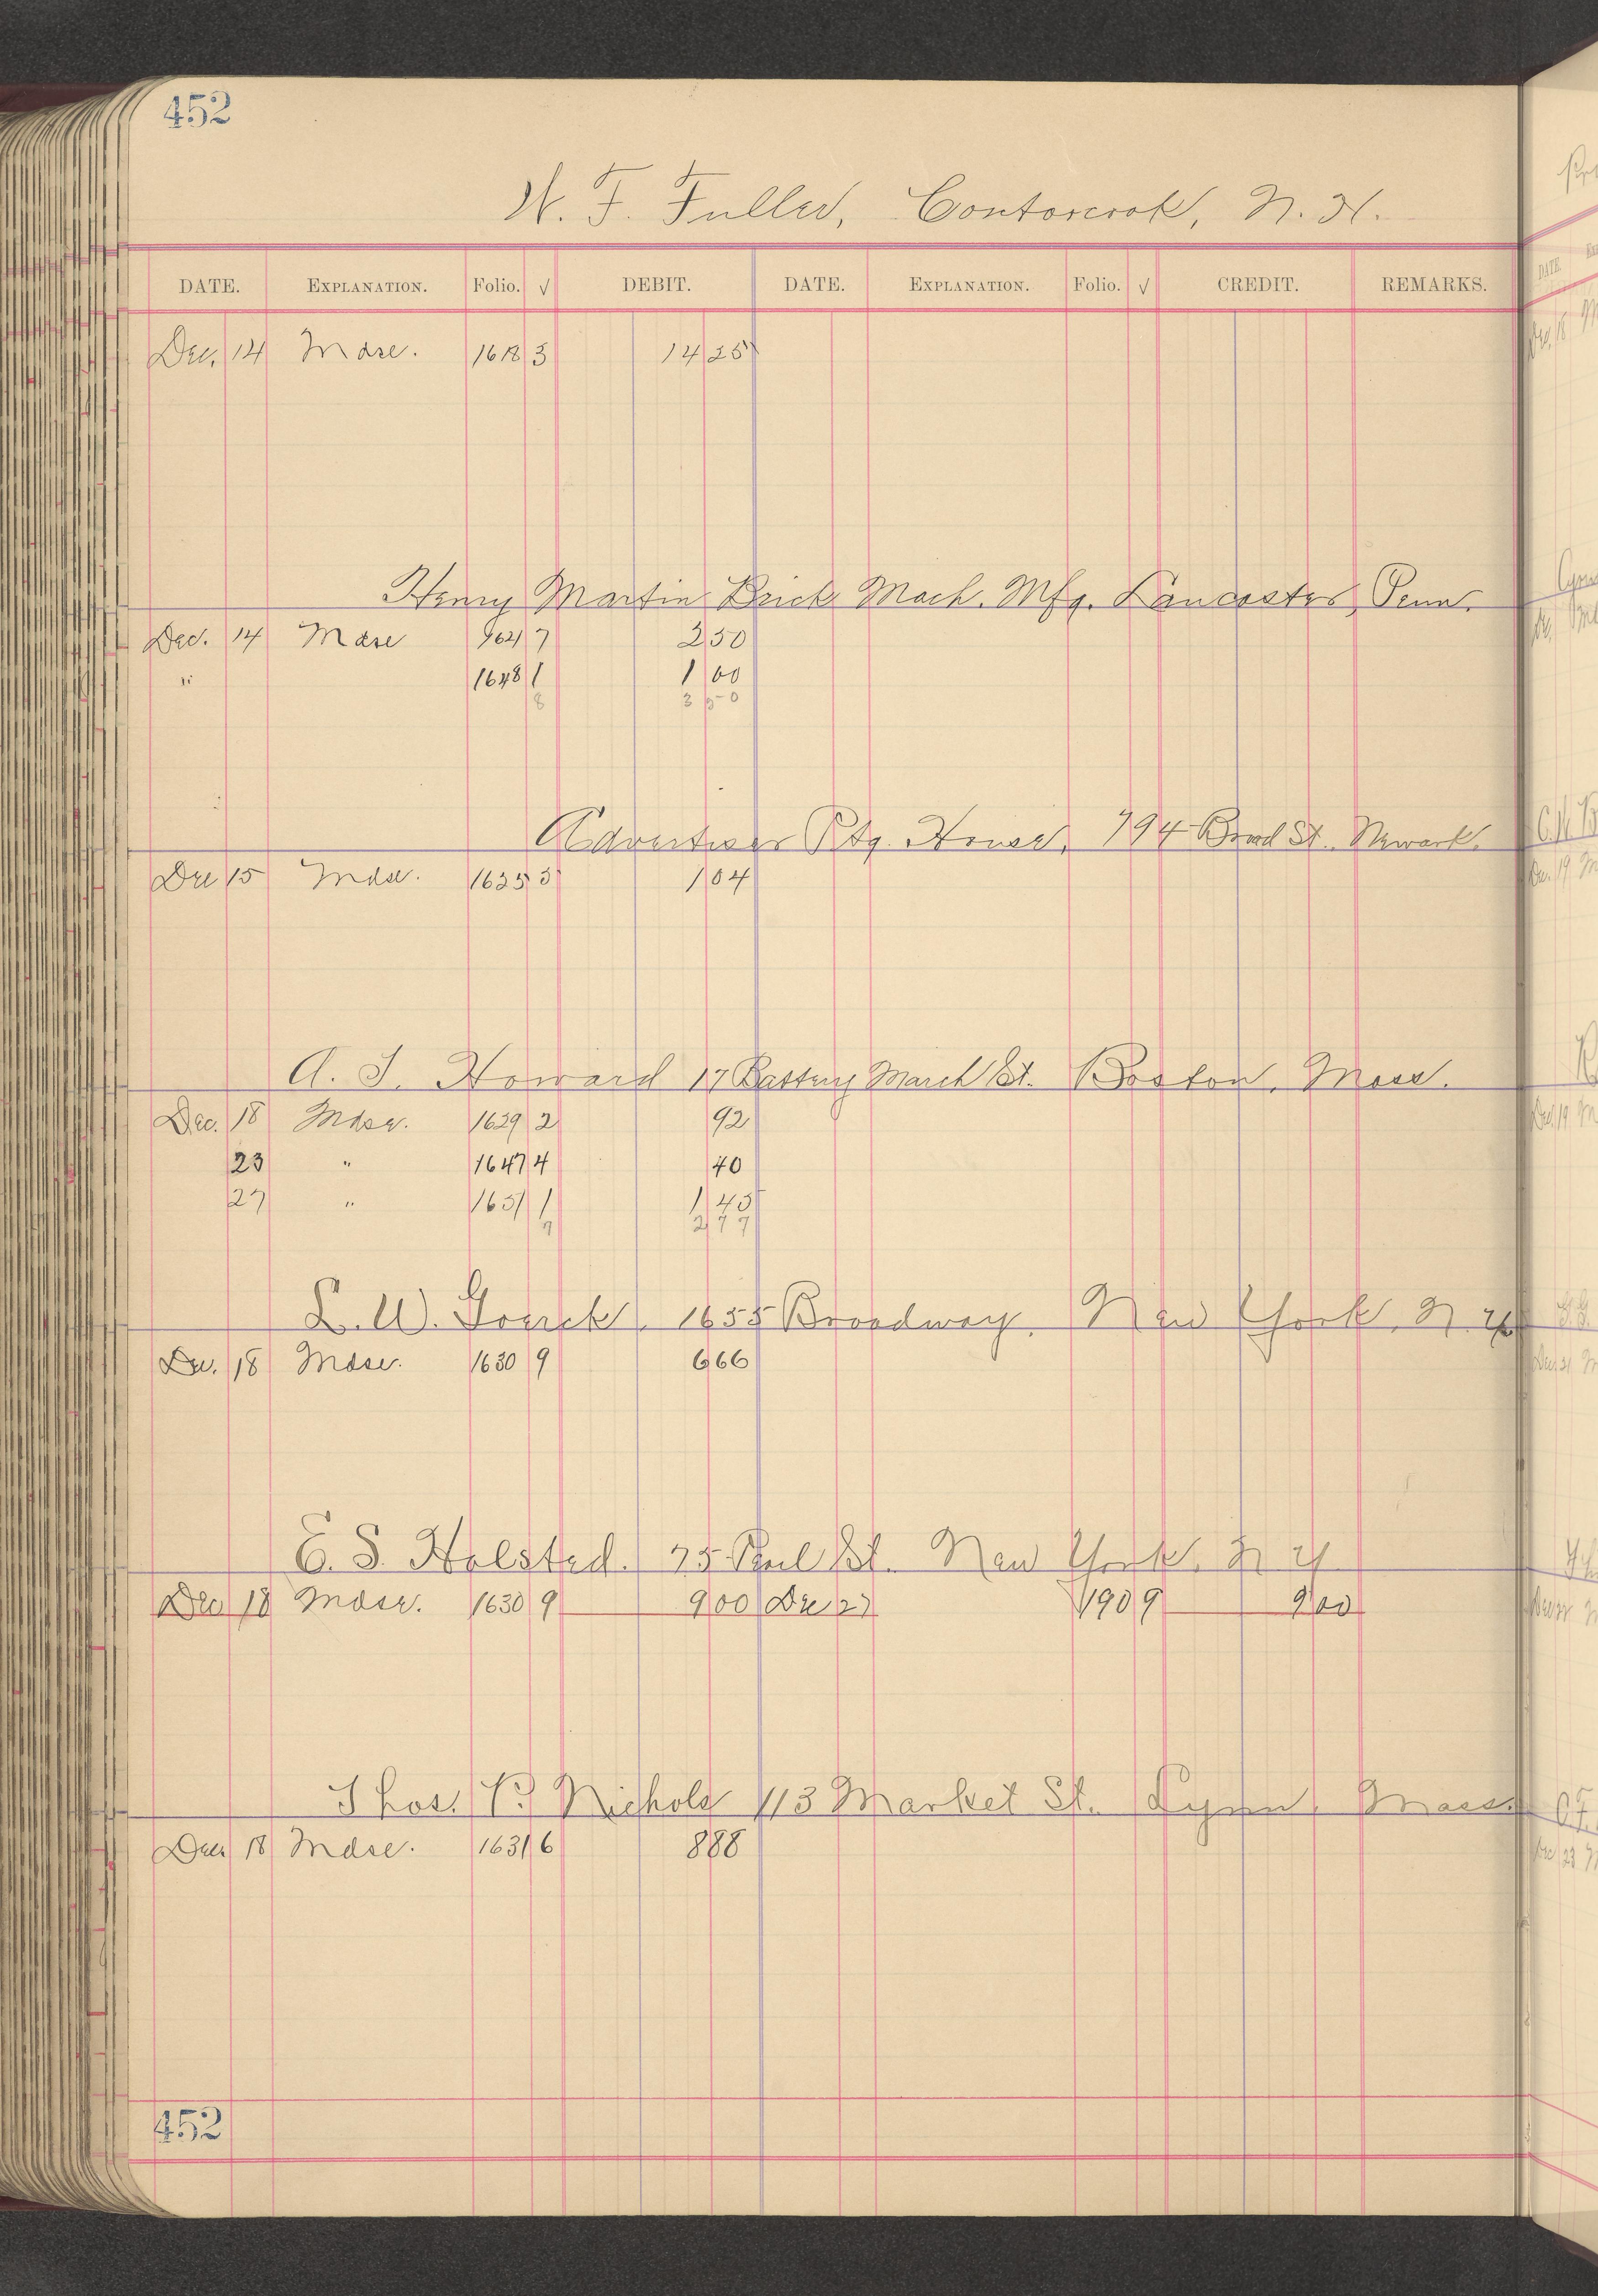 452
W. F. Fuller, Contoocook, N. H.
DATE. EXPLANATION. Folio. √ DEBIT. DATE. EXPLANATION. Folio. √ CREDIT. REMARKS.
Dec. 14 Mdse. 1618 3 14 25
Henry Martin Brick Mach. Mfg. Lancaster, Penn.
Dec. 14 Mdse 1621 7 2 50
" 1648 1 1 00
8 3 50
Advertiser Ptg. House, 794 Broad St. Newark.
Dec 15 Mdse. 1625 3 1 04
A. J. Howard 17 Battery March St. Boston, Mass.
Dec. 18 Mdse. 1629 2 92
23 " 1647 4 40
27 " 1651 1 1 45
7 2 77
L. W. Goerck, 1655 Broadway, New York, N. Y.
Dec. 18 Mdse. 1630 9 6 66
E. S. Halsted. 75 Pearl St. New York, N Y
Dec 18 Mdse. 1630 9 9 00 Dec 27 190 9 9 00
Thos. P. Nichols 113 Market St. Lynn, Mass.
Dec. 18 Mdse. 1631 6 8 88
452